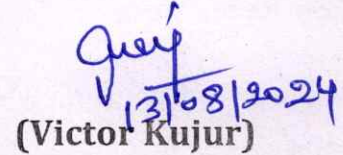 13/08/2024
(Victor Kujur)